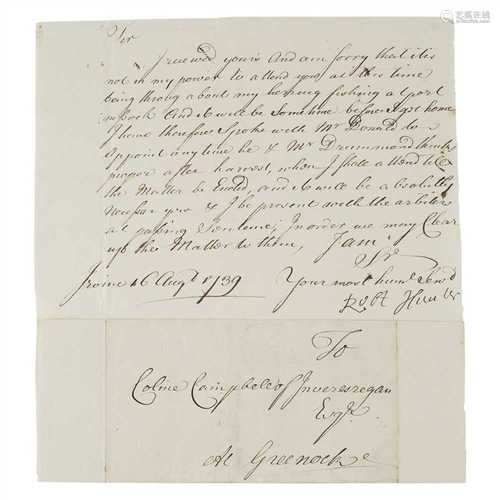 Sir
I receved yours And am sorry that it is
not in my power to attend you at this time
being throng about my herring fishing a part
in loch and it will be sometime before I get home
I have therefore Spoke with Mr Donald to
appoint any time he & Mr Drummond thinks
proper after harvest, when I shall attend till
the Matter be Ended, and it will be absolutly
Necessar you & I be present with the arbiters
at passing Sentence, In order we may Clear
up the Matter to them, I am
Sir
Irvine 16 Augt 1739 Your most humle Servt
Robt Hunter
To
Coline Campbell of Inveresregan
Esqr.
At Greenock